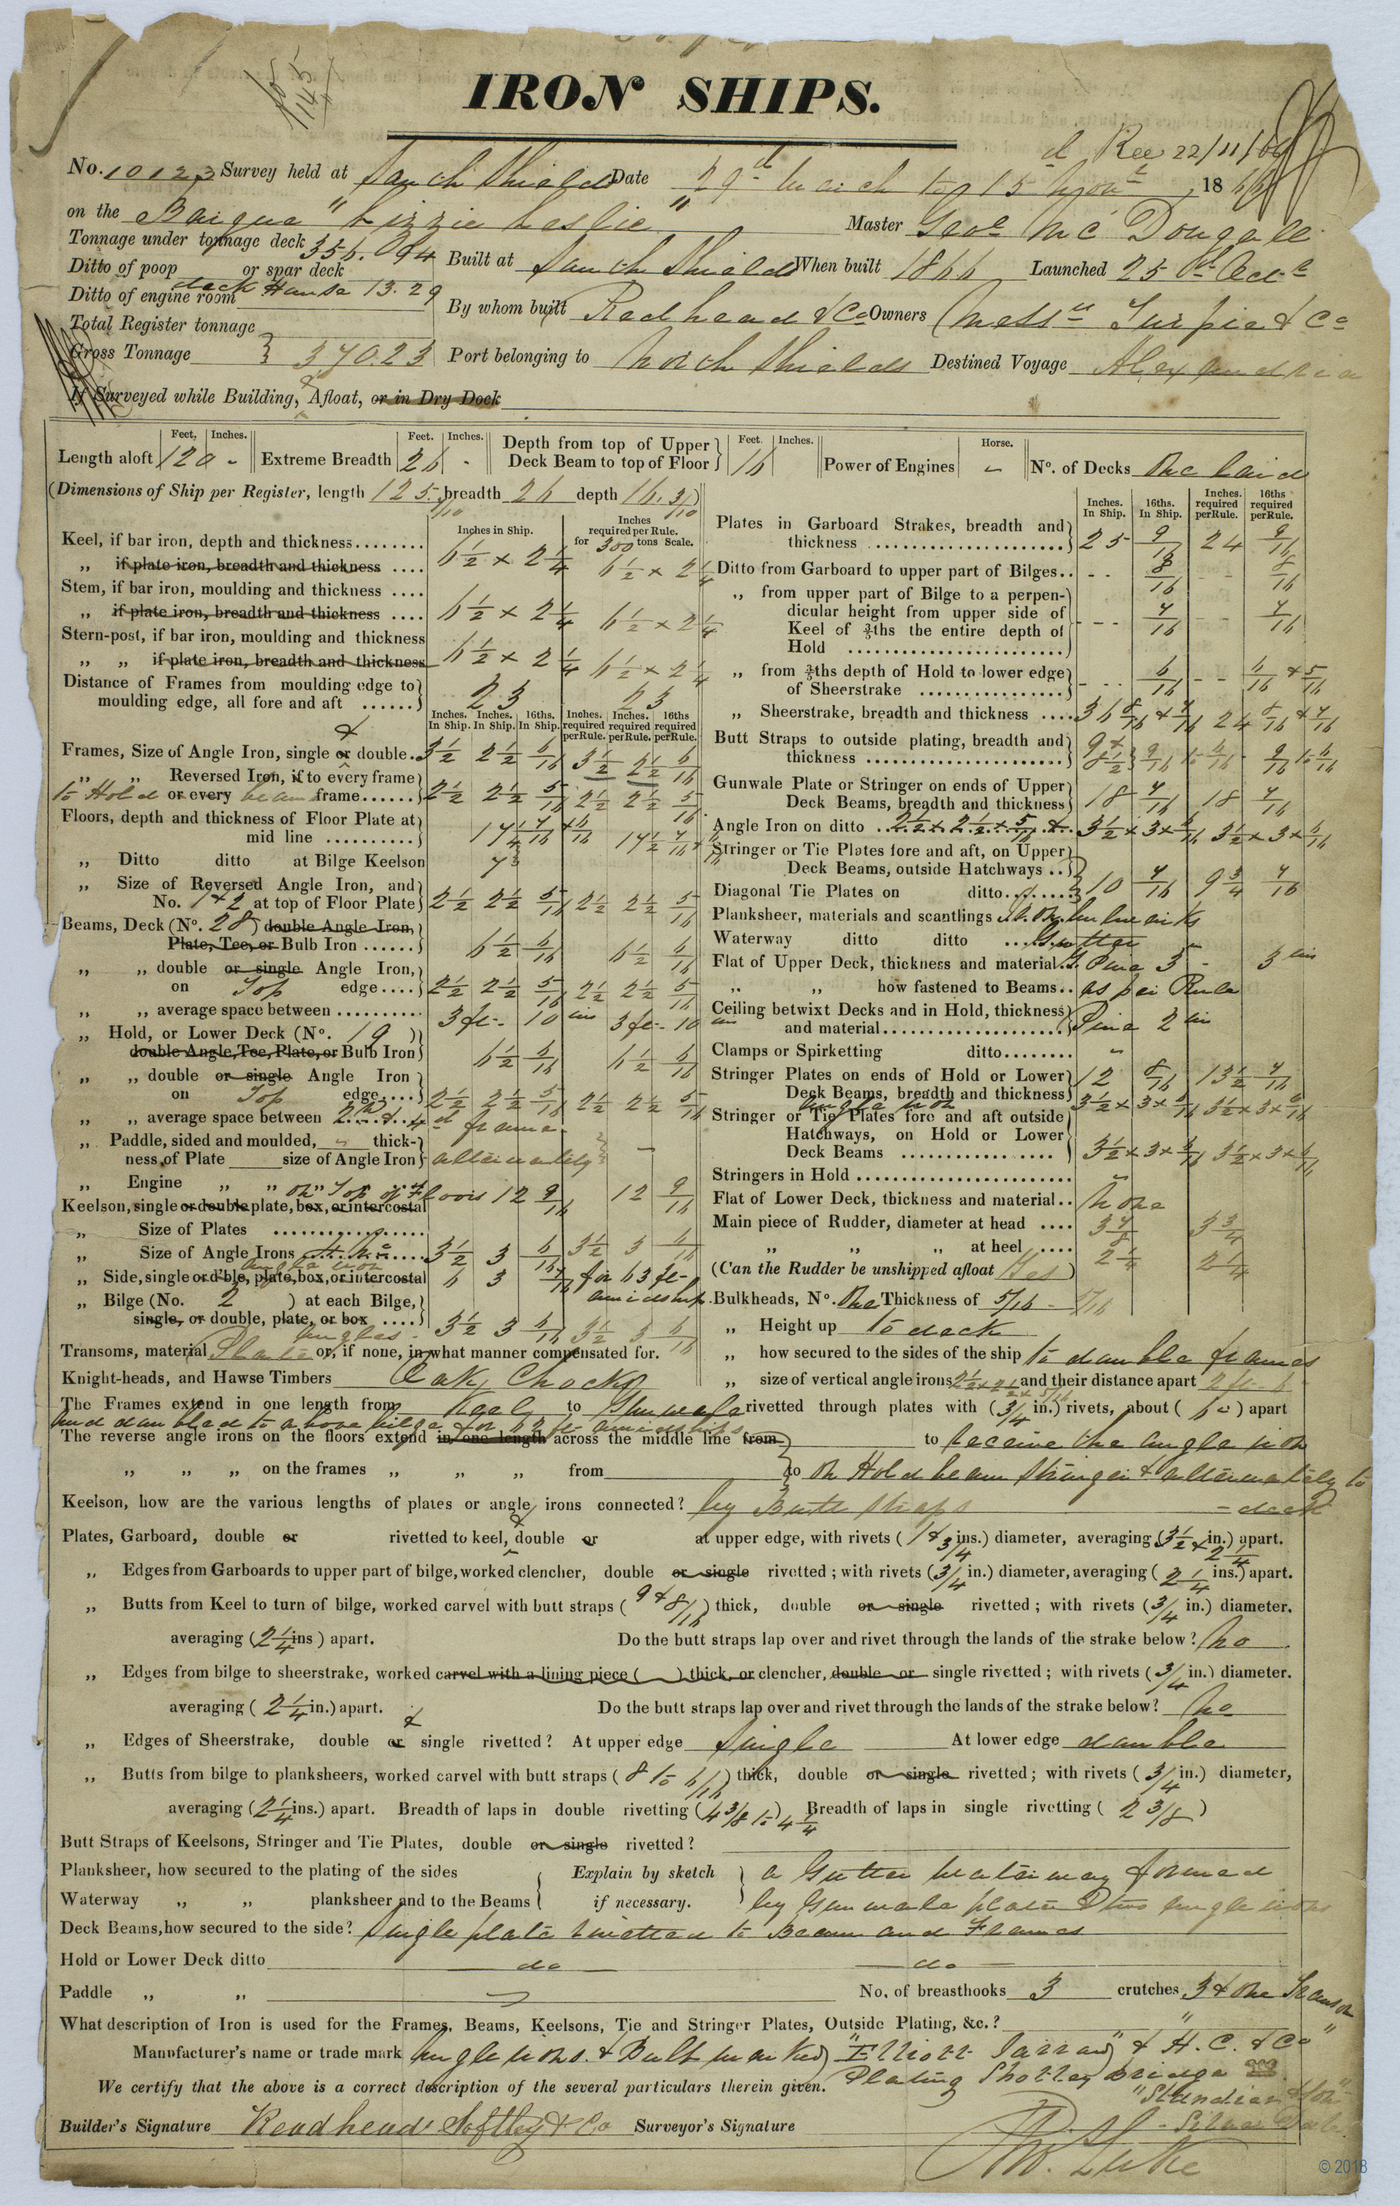 IRON SHIPS.
Rec 22/11/66
No. 10123 Survey held at South Shields Date 29th March to 15 Novr 1866
on the Barque "Lizzie Leslie" Master Geoe McDougall
Tonnage under tonnage deck 356.94
Ditto of poop or spar deck
deck House 13.29
Ditto of engine room
Total Register tonnage
Gross Tonnage 370.23
Built at South Shields When built 1866 Launched 25th Octr
By whom built Readhead & Co Owners Messrs Turpie & Co
Port belonging to North Shields Destined Voyage Alexandria
If Surveyed while Building, & Afloat, or in Dry Dock
Length aloft 120 - Extreme Breadth 26 - Depth from top of Upper Deck Beam to top of Floor 16 Power of Engines - No. of Decks One laid
Feet. Inches. Feet. Inches. Feet. Inches. Horse.
(Dimensions of Ship per Register, length 125.5/10 breadth 26 depth 16.3/10)
Inches in Ship. Inches required per Rule. for 300 tons Scale.
Keel, if bar iron, depth and thickness 6½ × 2¼ 6½ × 2¼
„ if plate iron, breadth and thickness
Stem, if bar iron, moulding and thickness 6½ × 2¼ 6½ × 2¼
„ if plate iron, breadth and thickness
Stern-post, if bar iron, moulding and thickness 6½ × 2¼ 6½ × 2¼
„ „ if plate iron, breadth and thickness
Distance of Frames from moulding edge to moulding edge, all fore and aft 23 23
Inches. In Ship. Inches. In Ship. 16ths. In Ship. Inches. required per Rule. Inches. required per Rule. 16ths required per Rule.
Frames, Size of Angle Iron, single or & double 3½ 2½ 6/16 3½ 2½ 6/16
„ „ Reversed Iron, if to every frame
to Hold or every beam frame 2½ 2½ 5/16 2½ 2½ 5/16
Floors, depth and thickness of Floor Plate at mid line 17¼ 7/16 & 6/16 17½ 7/16 & 6/16
„ Ditto ditto at Bilge Keelson
„ Size of Reversed Angle Iron, and No. 1 & 2 at top of Floor Plate 2½ 2½ 5/16 2½ 2½ 5/16
Beams, Deck (No. 28) double Angle Iron, Plate, Tee, or Bulb Iron 6½ 6/16 6½ 6/16
„ „ double or single Angle Iron, on Top edge 2½ 2½ 5/16 2½ 2½ 5/16
„ „ average space between 3 ft - 10 ins 3 ft - 10 ins
„ Hold, or Lower Deck (No. 19) double Angle, Tee, Plate, or Bulb Iron 6½ 6/16 6½ 6/16
„ „ double or single Angle Iron on Top edge 2½ 2½ 5/16 2½ 2½ 5/16
„ „ average space between 2nd & 4th frame
„ Paddle, sided and moulded, thickness of Plate size of Angle Iron alternately -
„ Engine „ „ on Top of Floors 12 9/16 12 9/16
Keelson, single or double plate, box, or intercostal
„ Size of Plates
„ Size of Angle Irons 3½ 3 6/16 3½ 3 6/16
angle iron
„ Side, single or d'ble, plate, box, or intercostal 6 3 7/16 for 63 ft amidships
„ Bilge (No. 2) at each Bilge, single, or double, plate, or box 3½ 3 6/16 3½ 3 6/16
angles
Transoms, material Plate or, if none, in what manner compensated for.
Knight-heads, and Hawse Timbers Oak Chocks
Inches. In Ship. 16ths. In Ship. Inches. required per Rule. 16ths required per Rule.
Plates in Garboard Strakes, breadth and thickness 25 9/16 24 9/16
Ditto from Garboard to upper part of Bilges - - 8/16 - - 8/16
„ from upper part of Bilge to a perpendicular height from upper side of Keel of ⅗ths the entire depth of Hold - - - 7/16 7/16
„ from ⅗ths depth of Hold to lower edge of Sheerstrake 6/16 - - 6/16 & 5/16
„ Sheerstrake, breadth and thickness 36 8/16 & 7/16 24 8/16 & 7/16
Butt Straps to outside plating, breadth and thickness 9 & 8½ 9/16 to 6/16 9/16 to 6/16
Gunwale Plate or Stringer on ends of Upper Deck Beams, breadth and thickness 18 7/16 18 7/16
Angle Iron on ditto 2½ × 2½ × 5/16 & 3½ × 3 × 6/16 3½ × 3 × 6/16
Stringer or Tie Plates fore and aft, on Upper Deck Beams, outside Hatchways
Diagonal Tie Plates on ditto 10 7/16 9¾ 7/16
Planksheer, materials and scantlings
Waterway ditto ditto Gutter
Flat of Upper Deck, thickness and material Y. Pine 3 - 3 ins
„ „ how fastened to Beams as per Rule
Ceiling betwixt Decks and in Hold, thickness and material Pine 2 in
Clamps or Spirketting ditto -
Stringer Plates on ends of Hold or Lower Deck Beams, breadth and thickness 12 8/16 13½ 7/16
angle iron 3½ × 3 × 6/16 3½ × 3 × 6/16
Stringer or Tie Plates fore and aft outside Hatchways, on Hold or Lower Deck Beams 3½ × 3 × 6/16 3½ × 3 × 6/16
Stringers in Hold
Flat of Lower Deck, thickness and material None
Main piece of Rudder, diameter at head 3⅞ 3¾
„ „ „ at heel 2¼ 2¼
(Can the Rudder be unshipped afloat Yes)
Bulkheads, No. One Thickness of 5/16 - 5/16
„ Height up to deck
„ how secured to the sides of the ship to double frames
„ size of vertical angle irons 2½ × 2½ × 5/16 and their distance apart 2 ft - 6
The Frames extend in one length from Keel to Gunwale rivetted through plates with (3/4 in.) rivets, about (6 in) apart
and doubled to above bilge for 63 ft amidships
The reverse angle irons on the floors extend in one length across the middle line from to receive the angle iron
„ „ „ on the frames „ „ „ from to on Hold beam Stringer & alternately to deck
Keelson, how are the various lengths of plates or angle irons connected? by Butt Straps
Plates, Garboard, double or rivetted to keel, & double or at upper edge, with rivets (1 & 3/4 ins.) diameter, averaging (3½ & 2¼ in.) apart.
„ Edges from Garboards to upper part of bilge, worked clencher, double or single rivetted; with rivets (3/4 in.) diameter, averaging (2¼ ins.) apart.
„ Butts from Keel to turn of bilge, worked carvel with butt straps (9 & 8/16) thick, double or single rivetted; with rivets (3/4 in.) diameter.
averaging (2¼ ins) apart. Do the butt straps lap over and rivet through the lands of the strake below? No
„ Edges from bilge to sheerstrake, worked carvel with a lining piece ( ) thick, or clencher, double or single rivetted; with rivets (3/4 in.) diameter.
averaging (2¼ in.) apart. Do the butt straps lap over and rivet through the lands of the strake below? No
„ Edges of Sheerstrake, double or & single rivetted? At upper edge single At lower edge double
„ Butts from bilge to planksheers, worked carvel with butt straps (8 to 6/16) thick, double or single rivetted; with rivets (3/4 in.) diameter,
averaging (2¼ ins.) apart. Breadth of laps in double rivetting (4⅜ to 4¼) Breadth of laps in single rivetting (2⅜)
Butt Straps of Keelsons, Stringer and Tie Plates, double or single rivetted?
Planksheer, how secured to the plating of the sides Explain by sketch a Gutter waterway formed
Waterway „ „ planksheer and to the Beams if necessary. by Gunwale plate & two angle irons
Deck Beams, how secured to the side? Single plate rivetted to Beam and Frames
Hold or Lower Deck ditto do do
Paddle „ „ No. of breasthooks 3 crutches 3 & one Transom
What description of Iron is used for the Frames, Beams, Keelsons, Tie and Stringer Plates, Outside Plating, &c.?
Manufacturer's name or trade mark Angle irons & Bulb marked "Elliott Jarrow" & "H. C. & Co"
Plating Shotley bridge
We certify that the above is a correct description of the several particulars therein given.
Builder's Signature Readhead Softley & Co Surveyor's Signature
Thos. Luke
© 2018